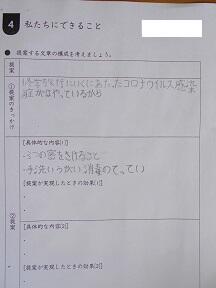 4 私たちにできること
● 提案する文章の構成を考えましょう。
提案
①提案のきっかけ
修学旅行にいくにあたったコロナウイルス感染
症がはやっているから
②提案
[具体的な内容(1)]
・3つの密をさけること
・手洗いうがい消毒のてってい
[提案が実現したときの効果(1)]
・
・
[具体的な内容(2)]
・
・
[提案が実現したときの効果(2)]
・